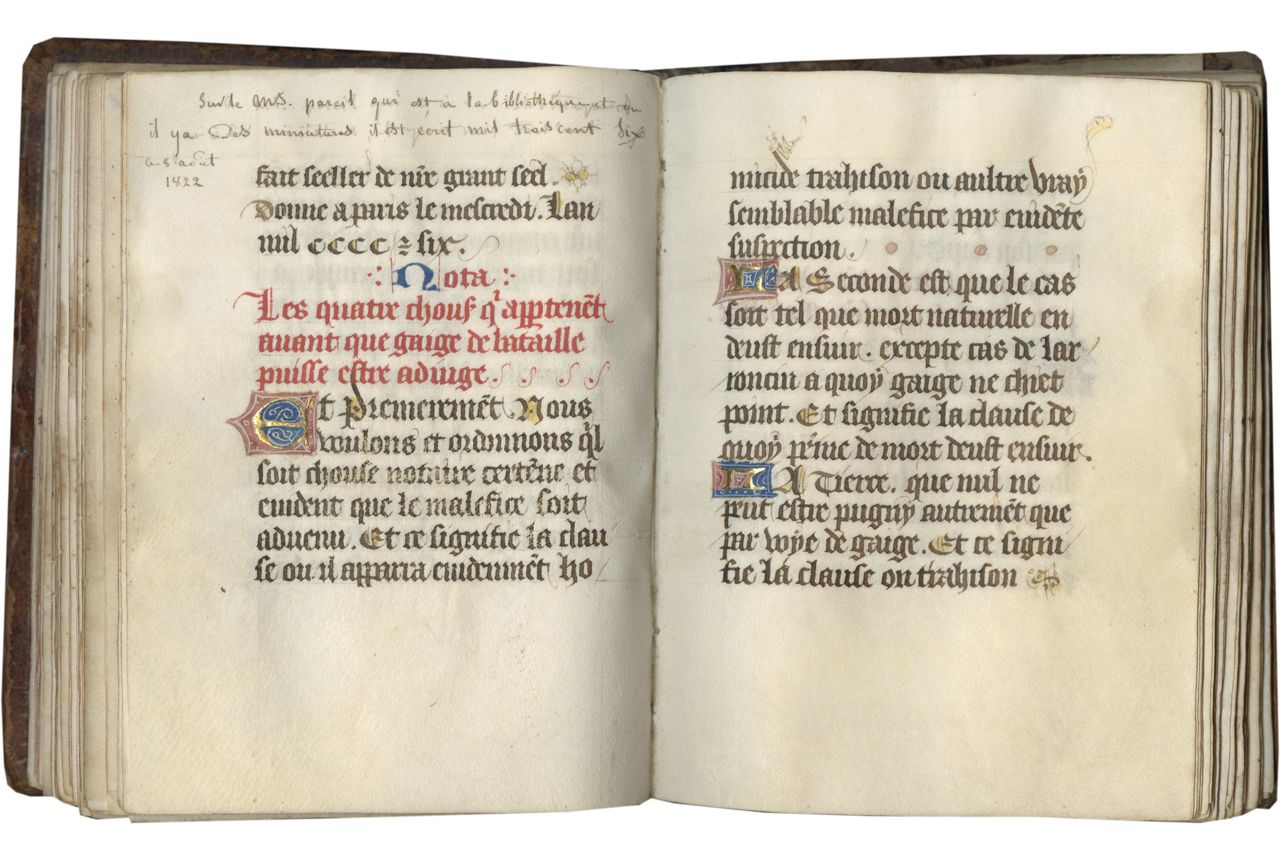 Sur le ms. pareil qui est à la bibliothèque et où
il y a des miniatures il est ecrit mil trois cent six
ce 5 août
1822
fait seeller de nr̃e grant seel.
Donne a paris le mescredi. Lan
mil cccc ⁊ six.
Nota
Les quatre chous̾ q' apptenẽt
auant que gaige de bataille
puisse estre adiuge
Et Premieremẽt Nous
voulons et ordonnons q̃l
soit chouse notoire certẽne et
euident que le malefice soit
aduenu. Et ce signifie la clau
se ou il apparra euidenmẽt ho
micide trahison ou aultre vray
semblable malefice par euidẽte
suspection.
LA Seconde est que le cas
soit tel que mort naturelle en
deust ensuir. excepte cas de lar
roncin a quoy gaige ne chiet
point. Et signifie la clause de
quoy peine de mort deust ensuir.
LA Tierce. que nul ne
peut estre pugny autremẽt que
par voye de gaige. Et ce signi
fie la clause on trahison